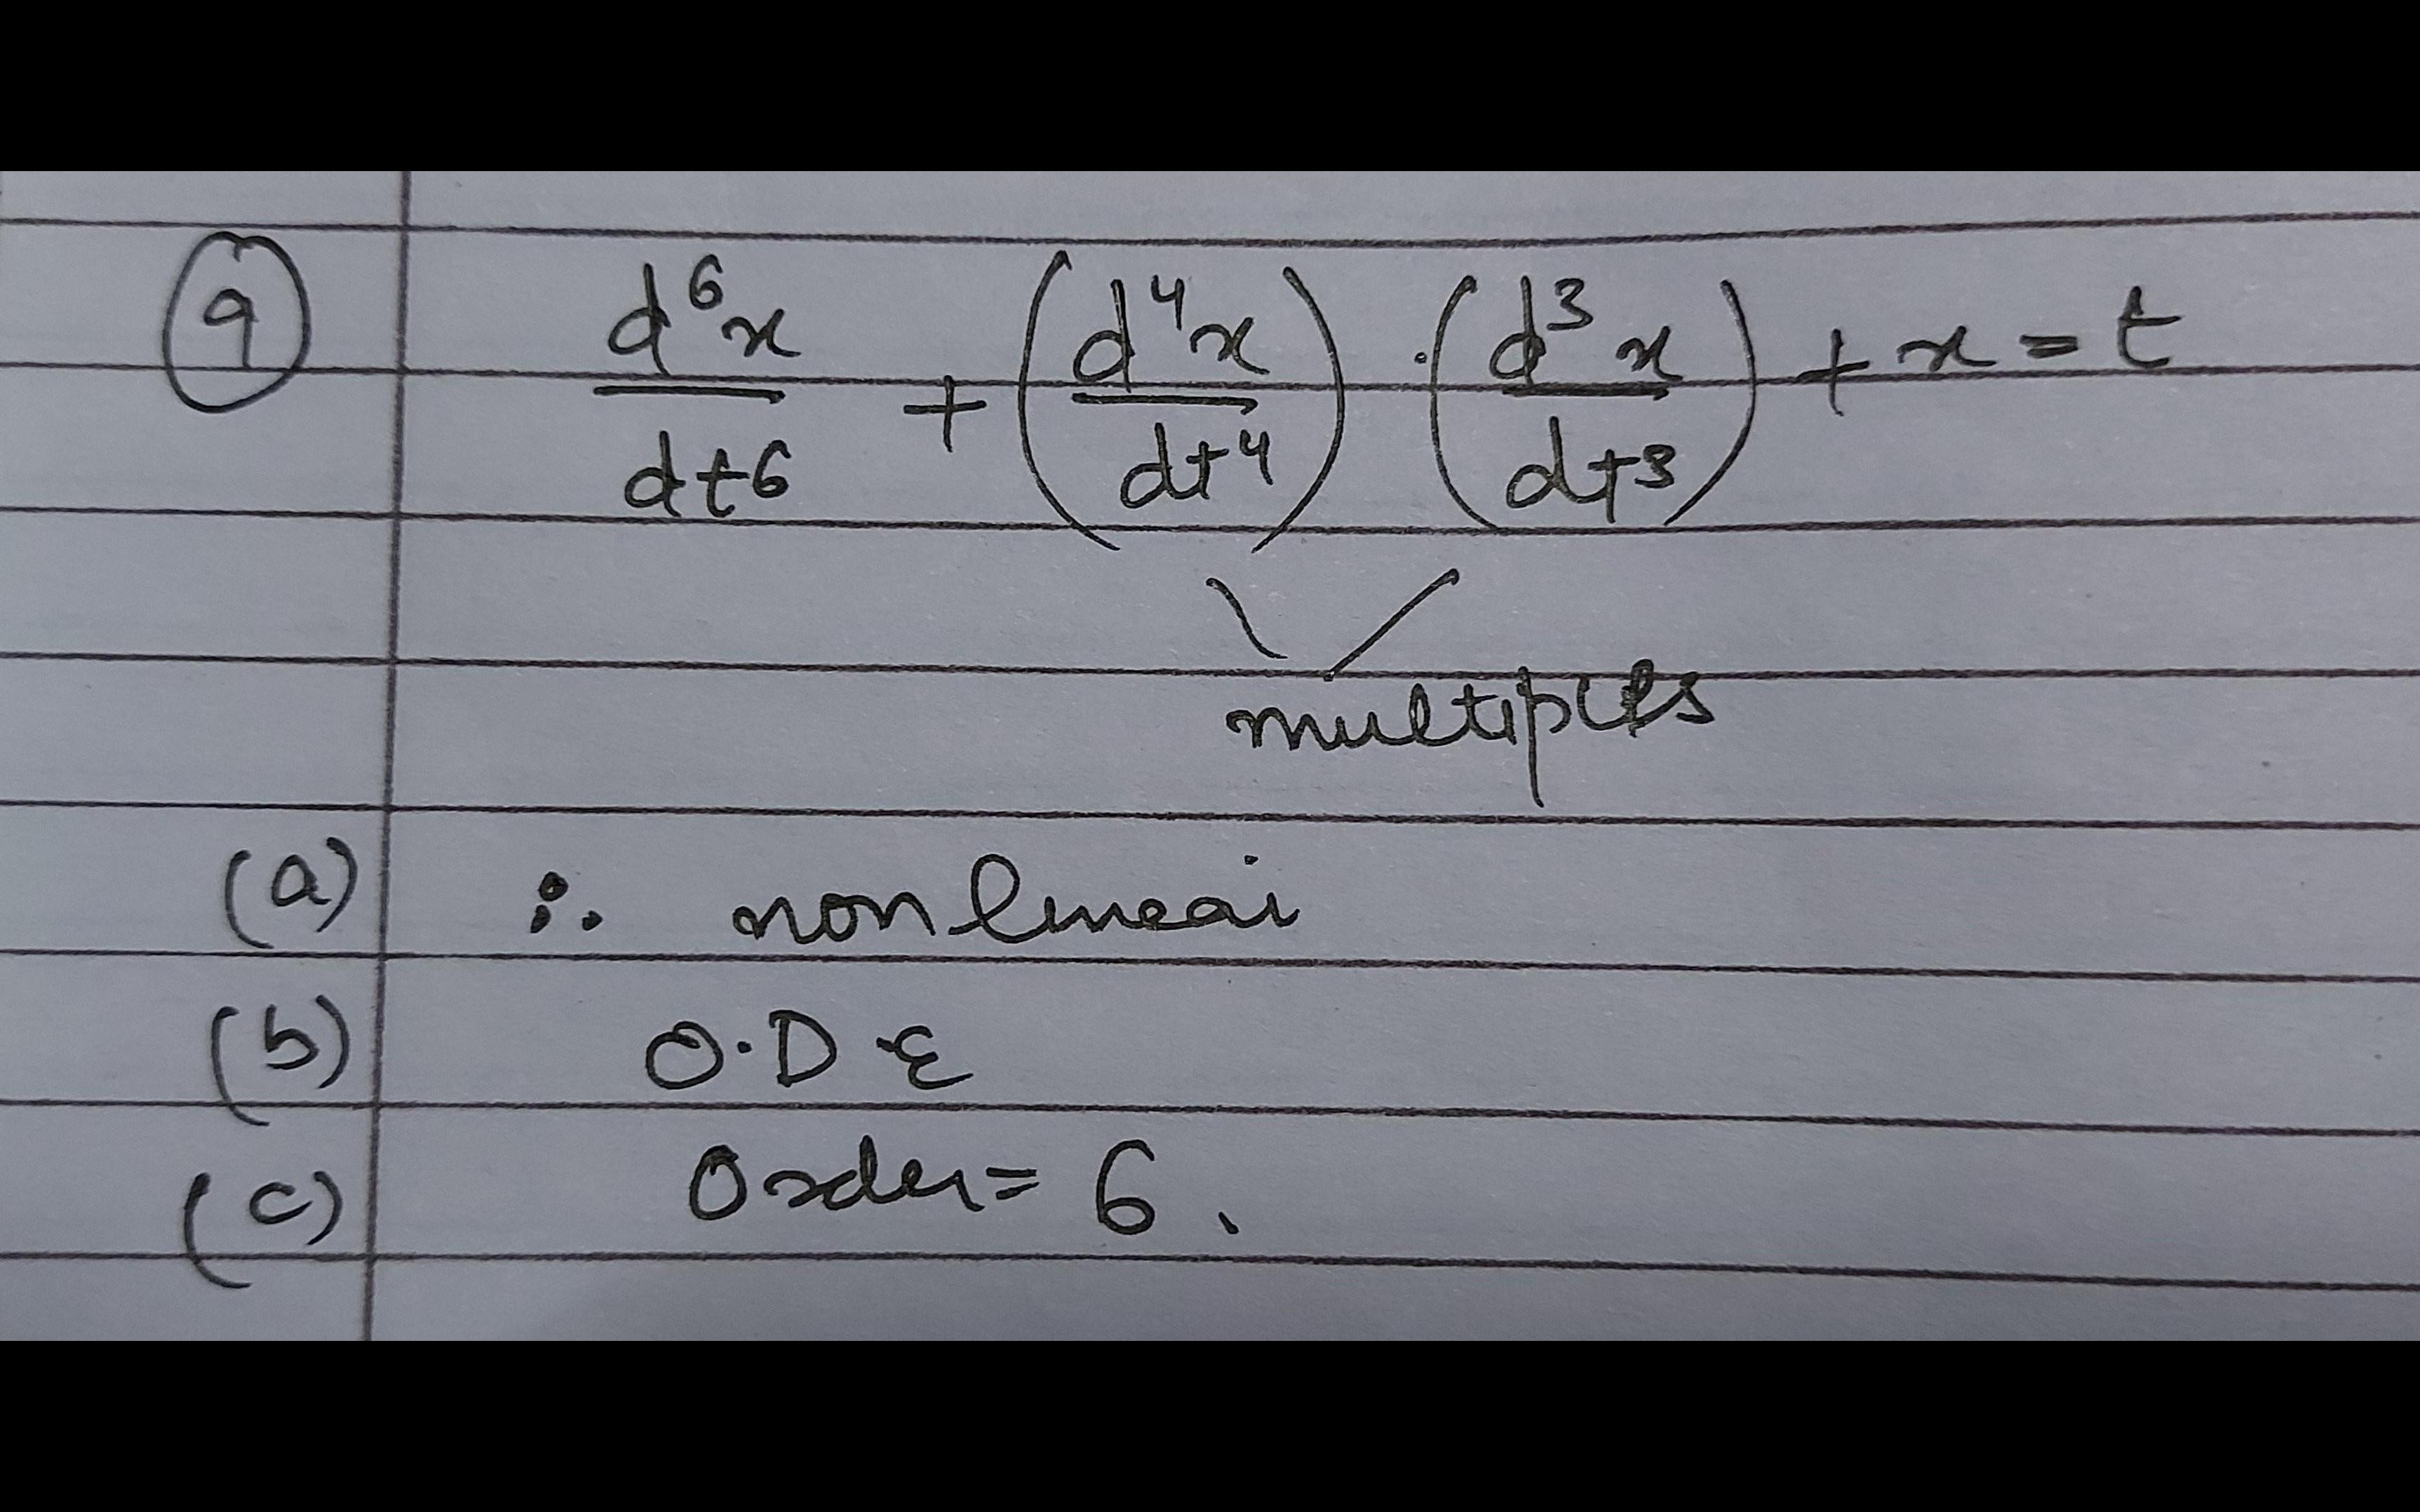 9 d⁶x/dt⁶ + (d⁴x/dt⁴) · (d³x/dt³) + x = t
multiples
(a) ∴ non linear
(b) O.D.E
(c) Order = 6.